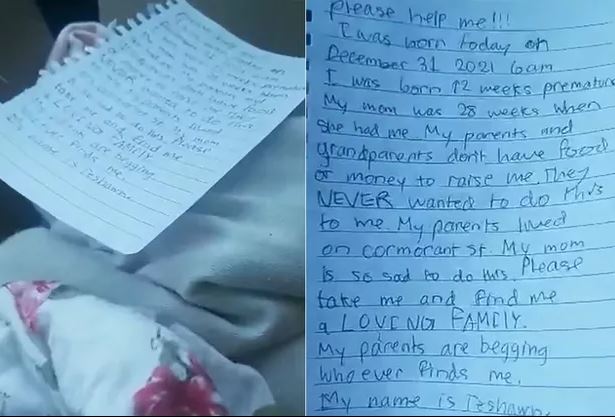 please help me!!!
I was born today on
December 31 2021 6am
I was born 12 weeks premature
My mom was 28 weeks when
she had me My parents and
grandparents don't have food
or money to raise me. They
NEVER wanted to do this
to me. My parents lived
on cormorant st. My mom
is so sad to do this. Please
take me and find me
a LOVING FAMILY.
My parents are begging
who ever finds me.
My name is Teshawn.